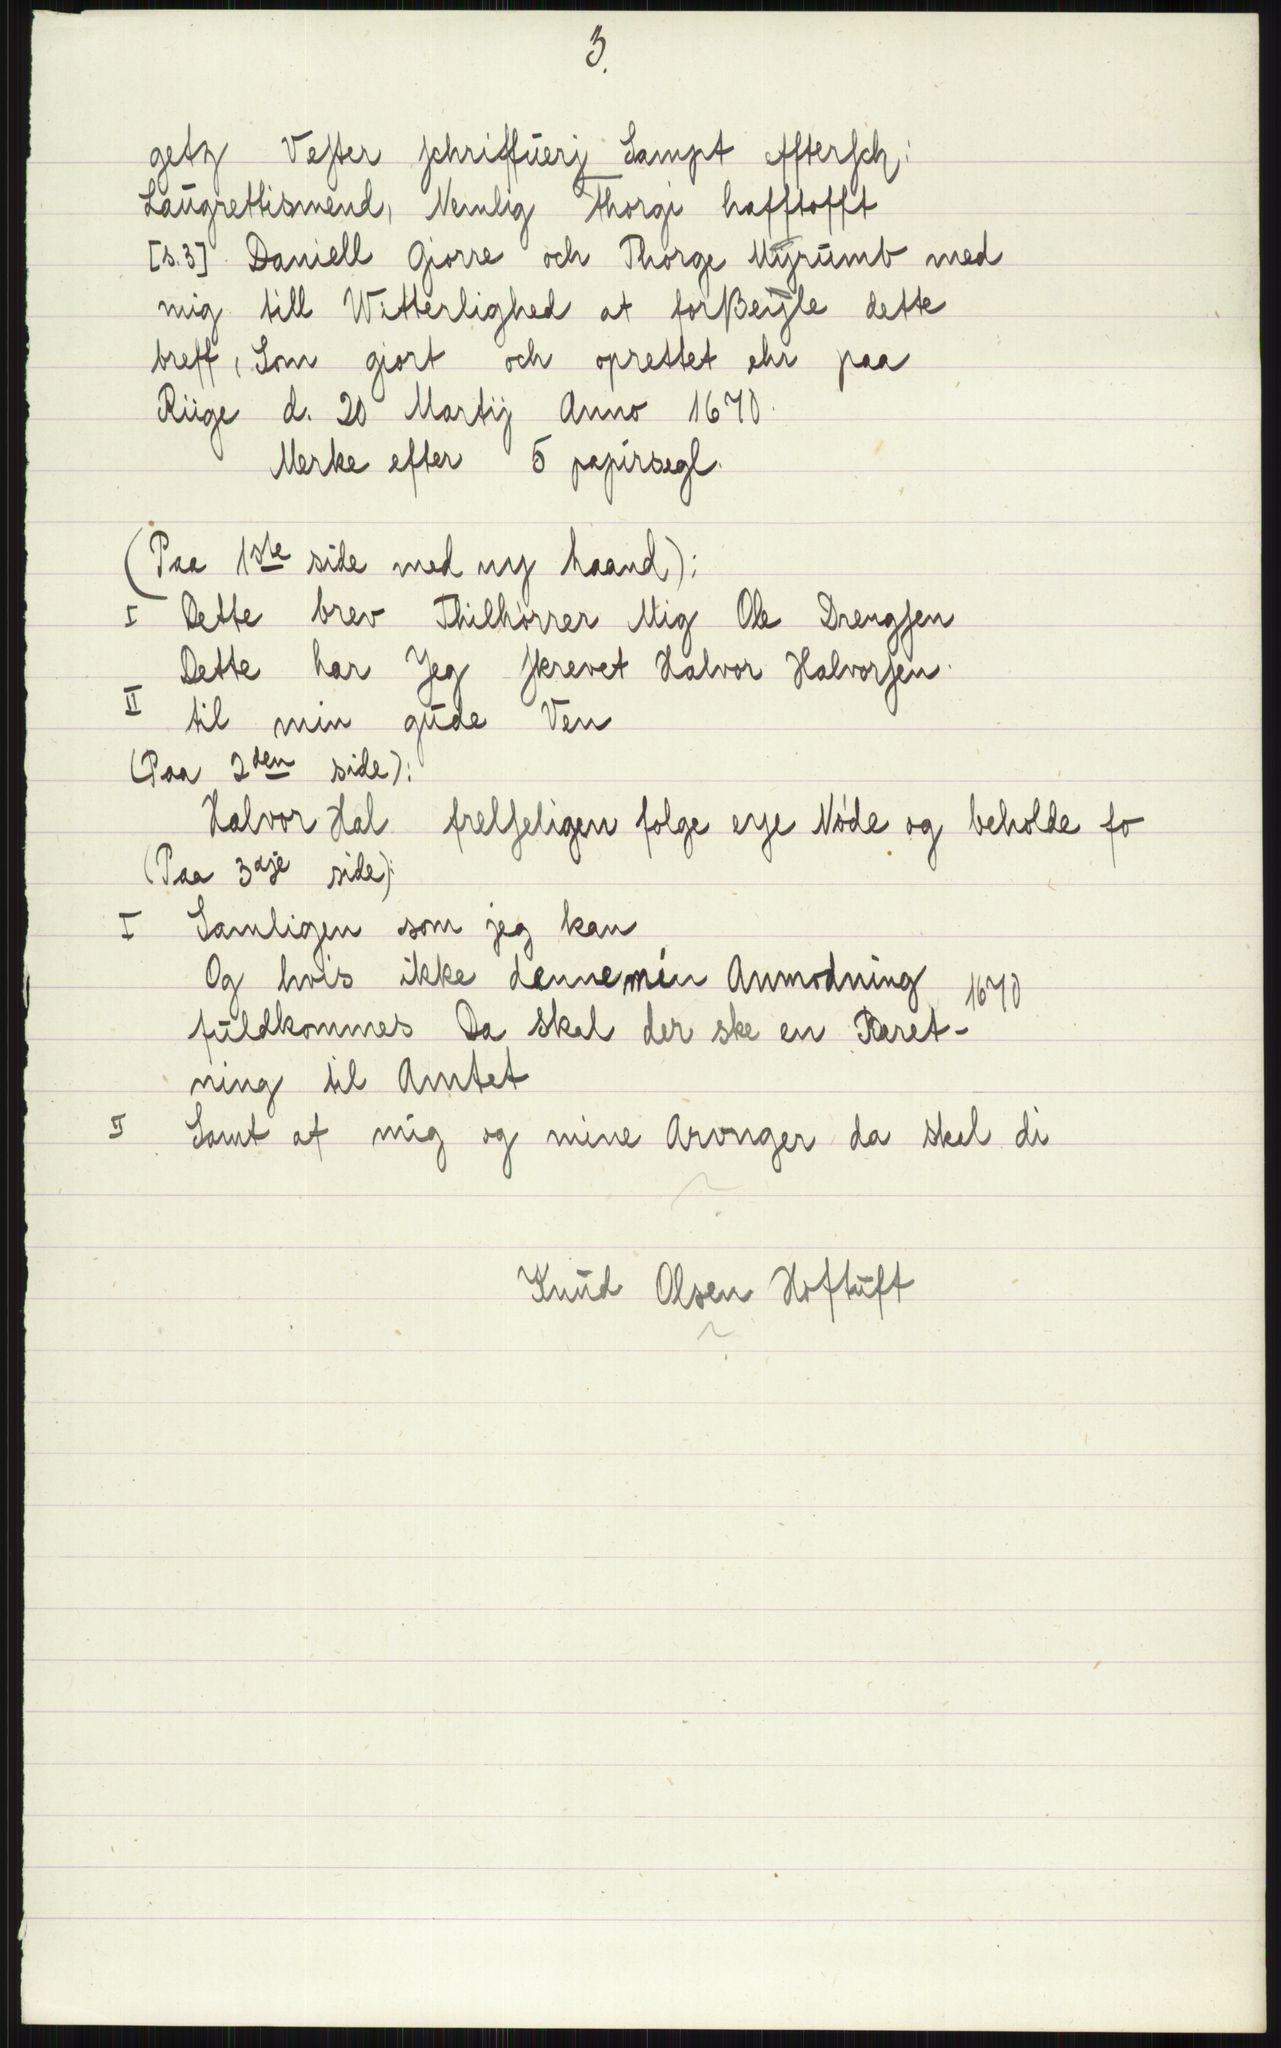 3.
getz Vester schriffuerj Sampt efftersch:
Laugrettismend, Nemlig Thorgi hafftofft
[s.3] Daniell Giorre och Thorge Myrumb med
mig till Witterlighed at forßeigle dette
breff, Som giort och oprettet ehr paa
Riige d. 20 Martij Anno 1670.
Merke efter 5 papirsegl.
(Paa 1ste side med ny haand):
I Dette brev Thilhørrer Mig Ole Drengsen
Dette har Jeg skrevet Halvor Halvorsen.
II til min gude Ven
(Paa 2den side):
Halvor Hal frelseligen folge eye Nøde og beholde fo
(Paa 3dje side):
I Samligen som jeg kan
Og hvis ikke denne min Anmodning 1670
fuldkommes Da skal der ske en Raret-
ning til Amtet
II Samt af mig og mine Arvnger da skal di
Knud Olsen Hoftuft